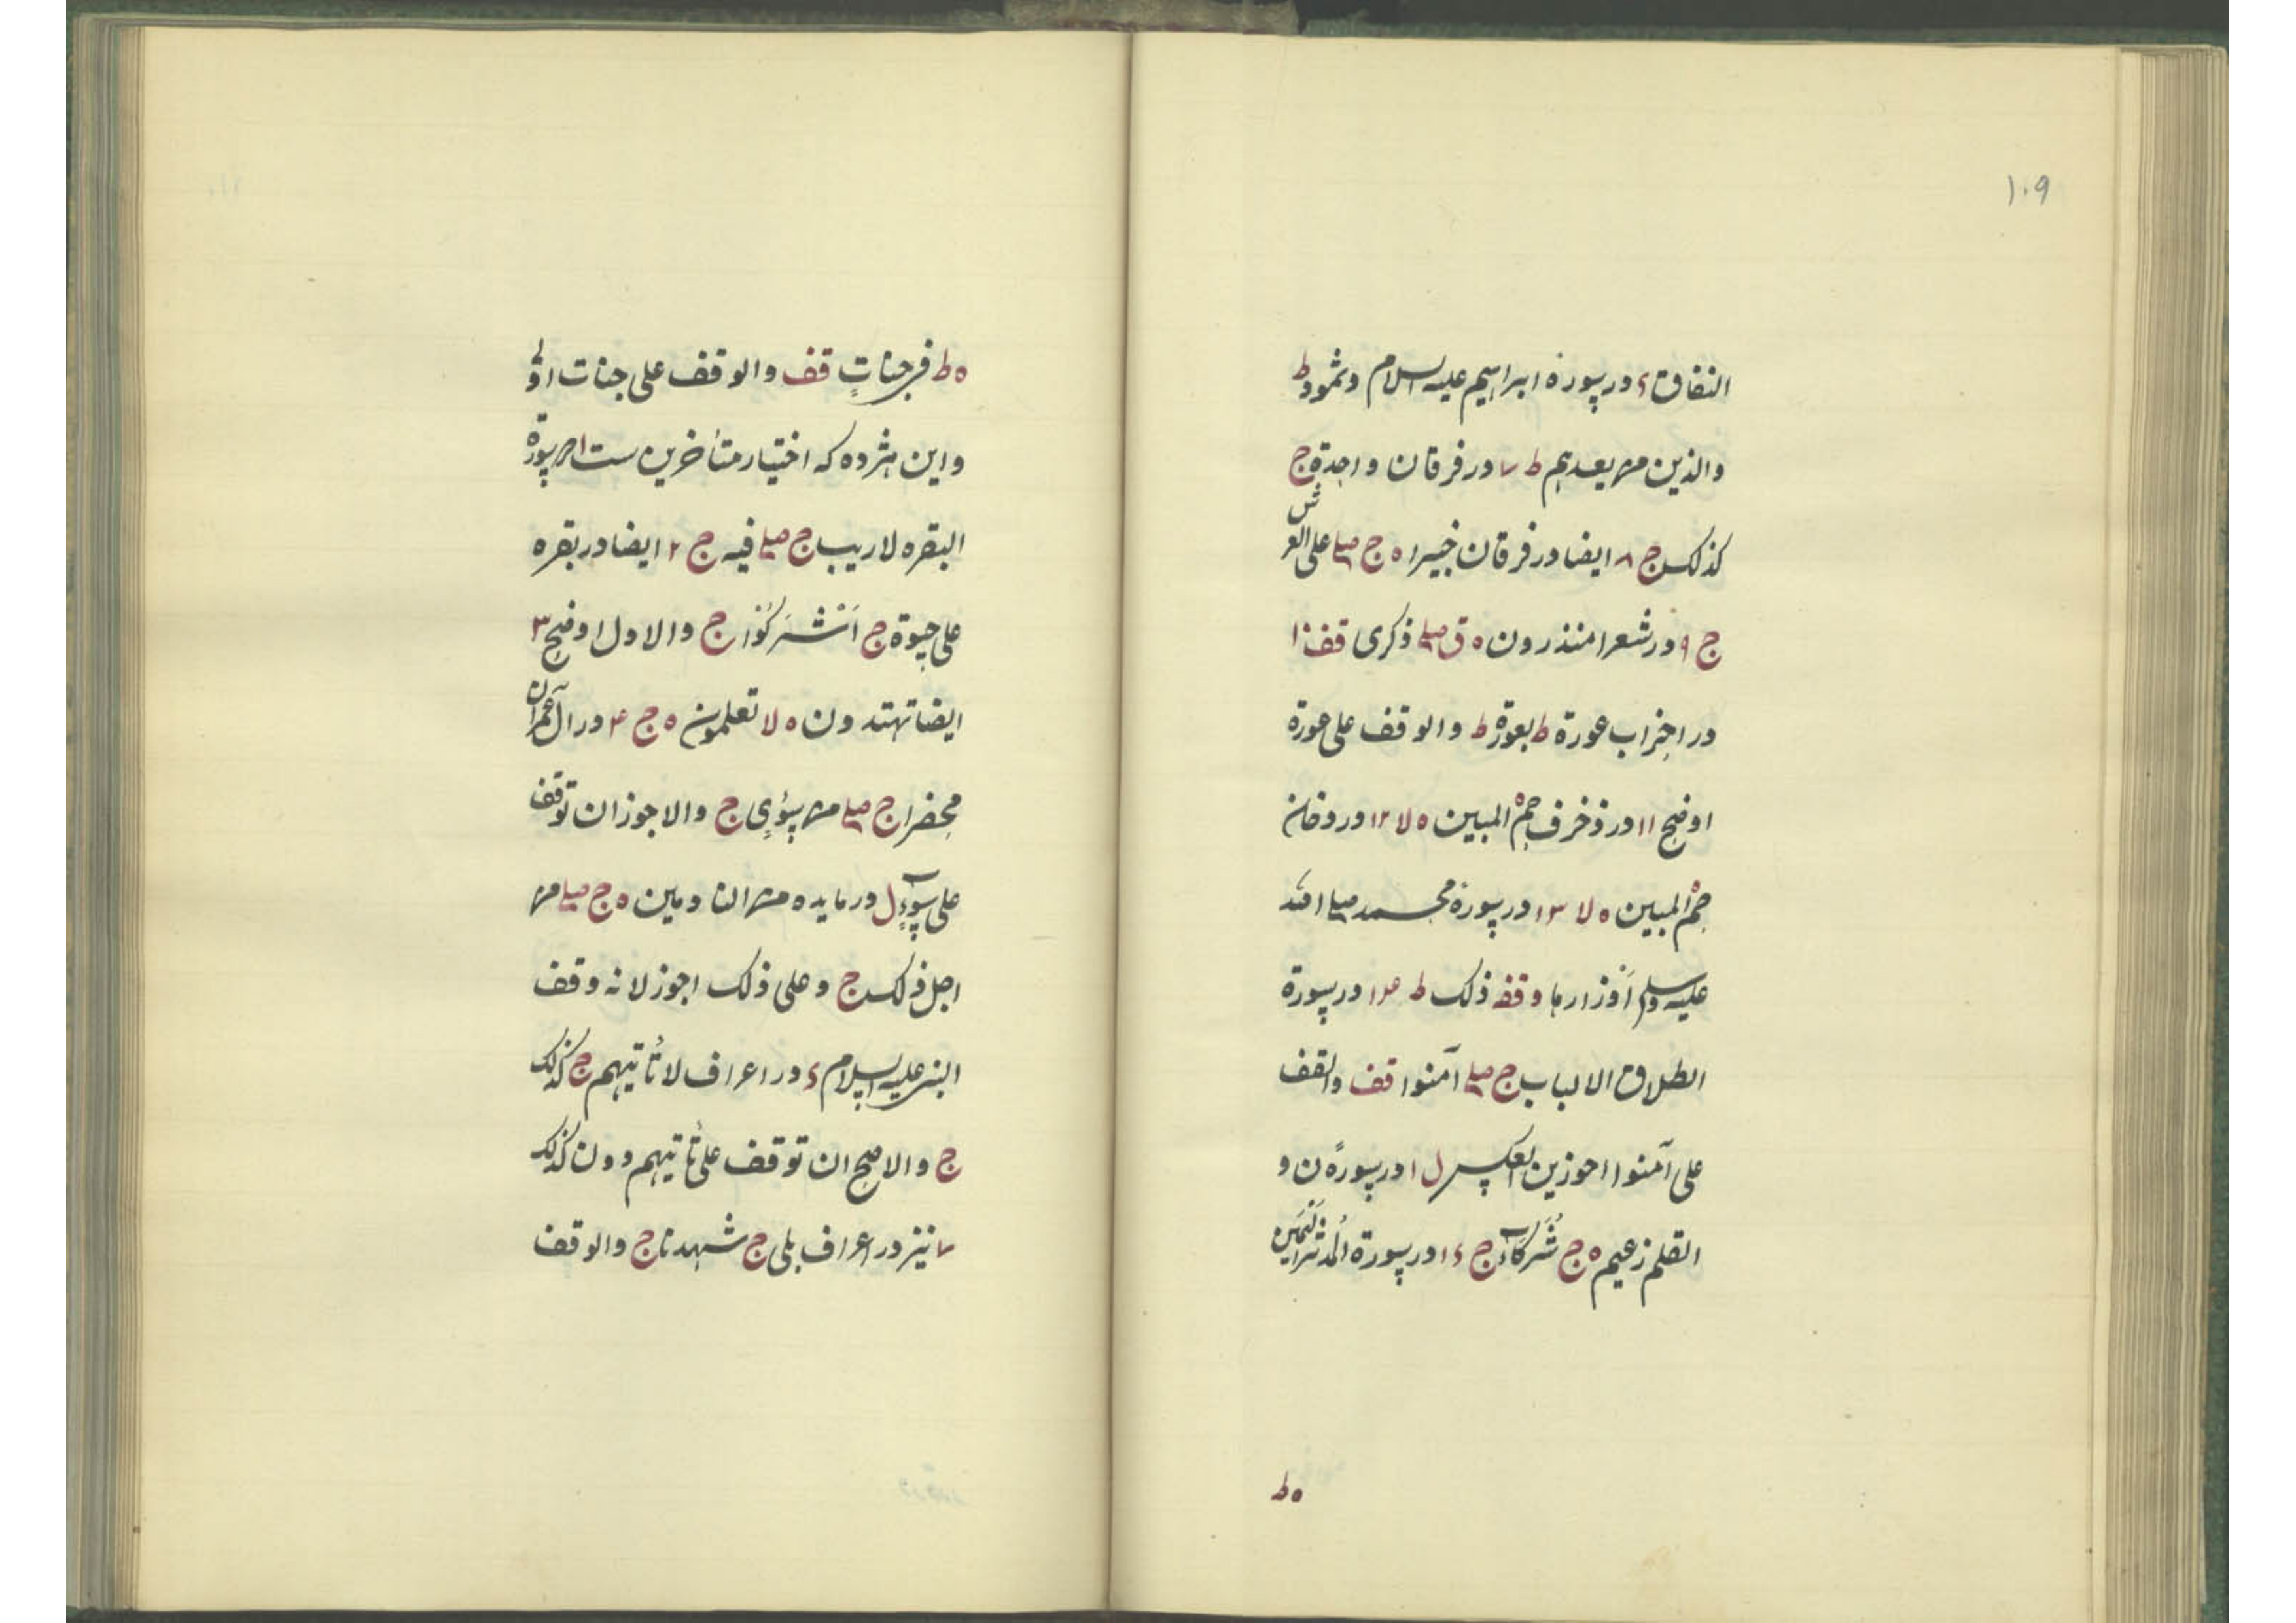 ۱۰۹
النفاق ۶ در سورة ابراهیم علیه السلام وثمود ط
والذین من بعدهم ط ۷ در فرقان واحدة ج
کذلک ج ۸ ایضا در فرقان خبیرا ه ج صلے علی العرش
ج ۹ در شعرا منذرون ه ق صلے ذکری قف ۱۰
در احزاب عورة ط بعورة ط والوقف علی عورة
اوضح ۱۱ در زخرف حم ه المبین ه لا ۱۲ در دخان
حم ه المبین ه لا ۱۳ در سورة محمد صلی الله
علیه وسلم اَوْزارها وقفة ذلک ط ۱۴ در سورة
الطلاق الالباب ج صلے آمنوا قف والقف
علی آمنوا احوزین العکس ل ۱ در سورة ن و
القلم زعیم ه ج شُرَکآء ج ۱۶ در سورة المدثر الیَمین
ه ط
ه ط فی جناتٍ قف والوقف علی جنات اولی
واین هژده که اختیار متأخرین ست ۱ در سورة
البقره لاریب ج صلے فیه ج ۲ ایضا در بقره
علی حیوة ج اَشْرَکُوْا ج والاول اوضح ۳
ایضا تهتدون ه لا تعلمون ه ج ۴ در آل عمران
محضرا ج صلے من سُوْءٍ ج والاجوز ان توقف
علی سوٓءٍ ل در مایده من النادمین ه ج صلے من
اجل ذلک ج وعلی ذلک اجوز لانه وقف
النبی علیه السلام ۶ در اعراف لا تأتیهم ج کذلک
ج والاصح ان توقف علی تأتیهم دون کذلک
۷ نیز در اعراف بلی ج شهدنا ج والوقف